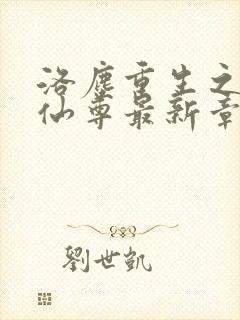 洛塵重生之
仙尊最新章
劉世凱